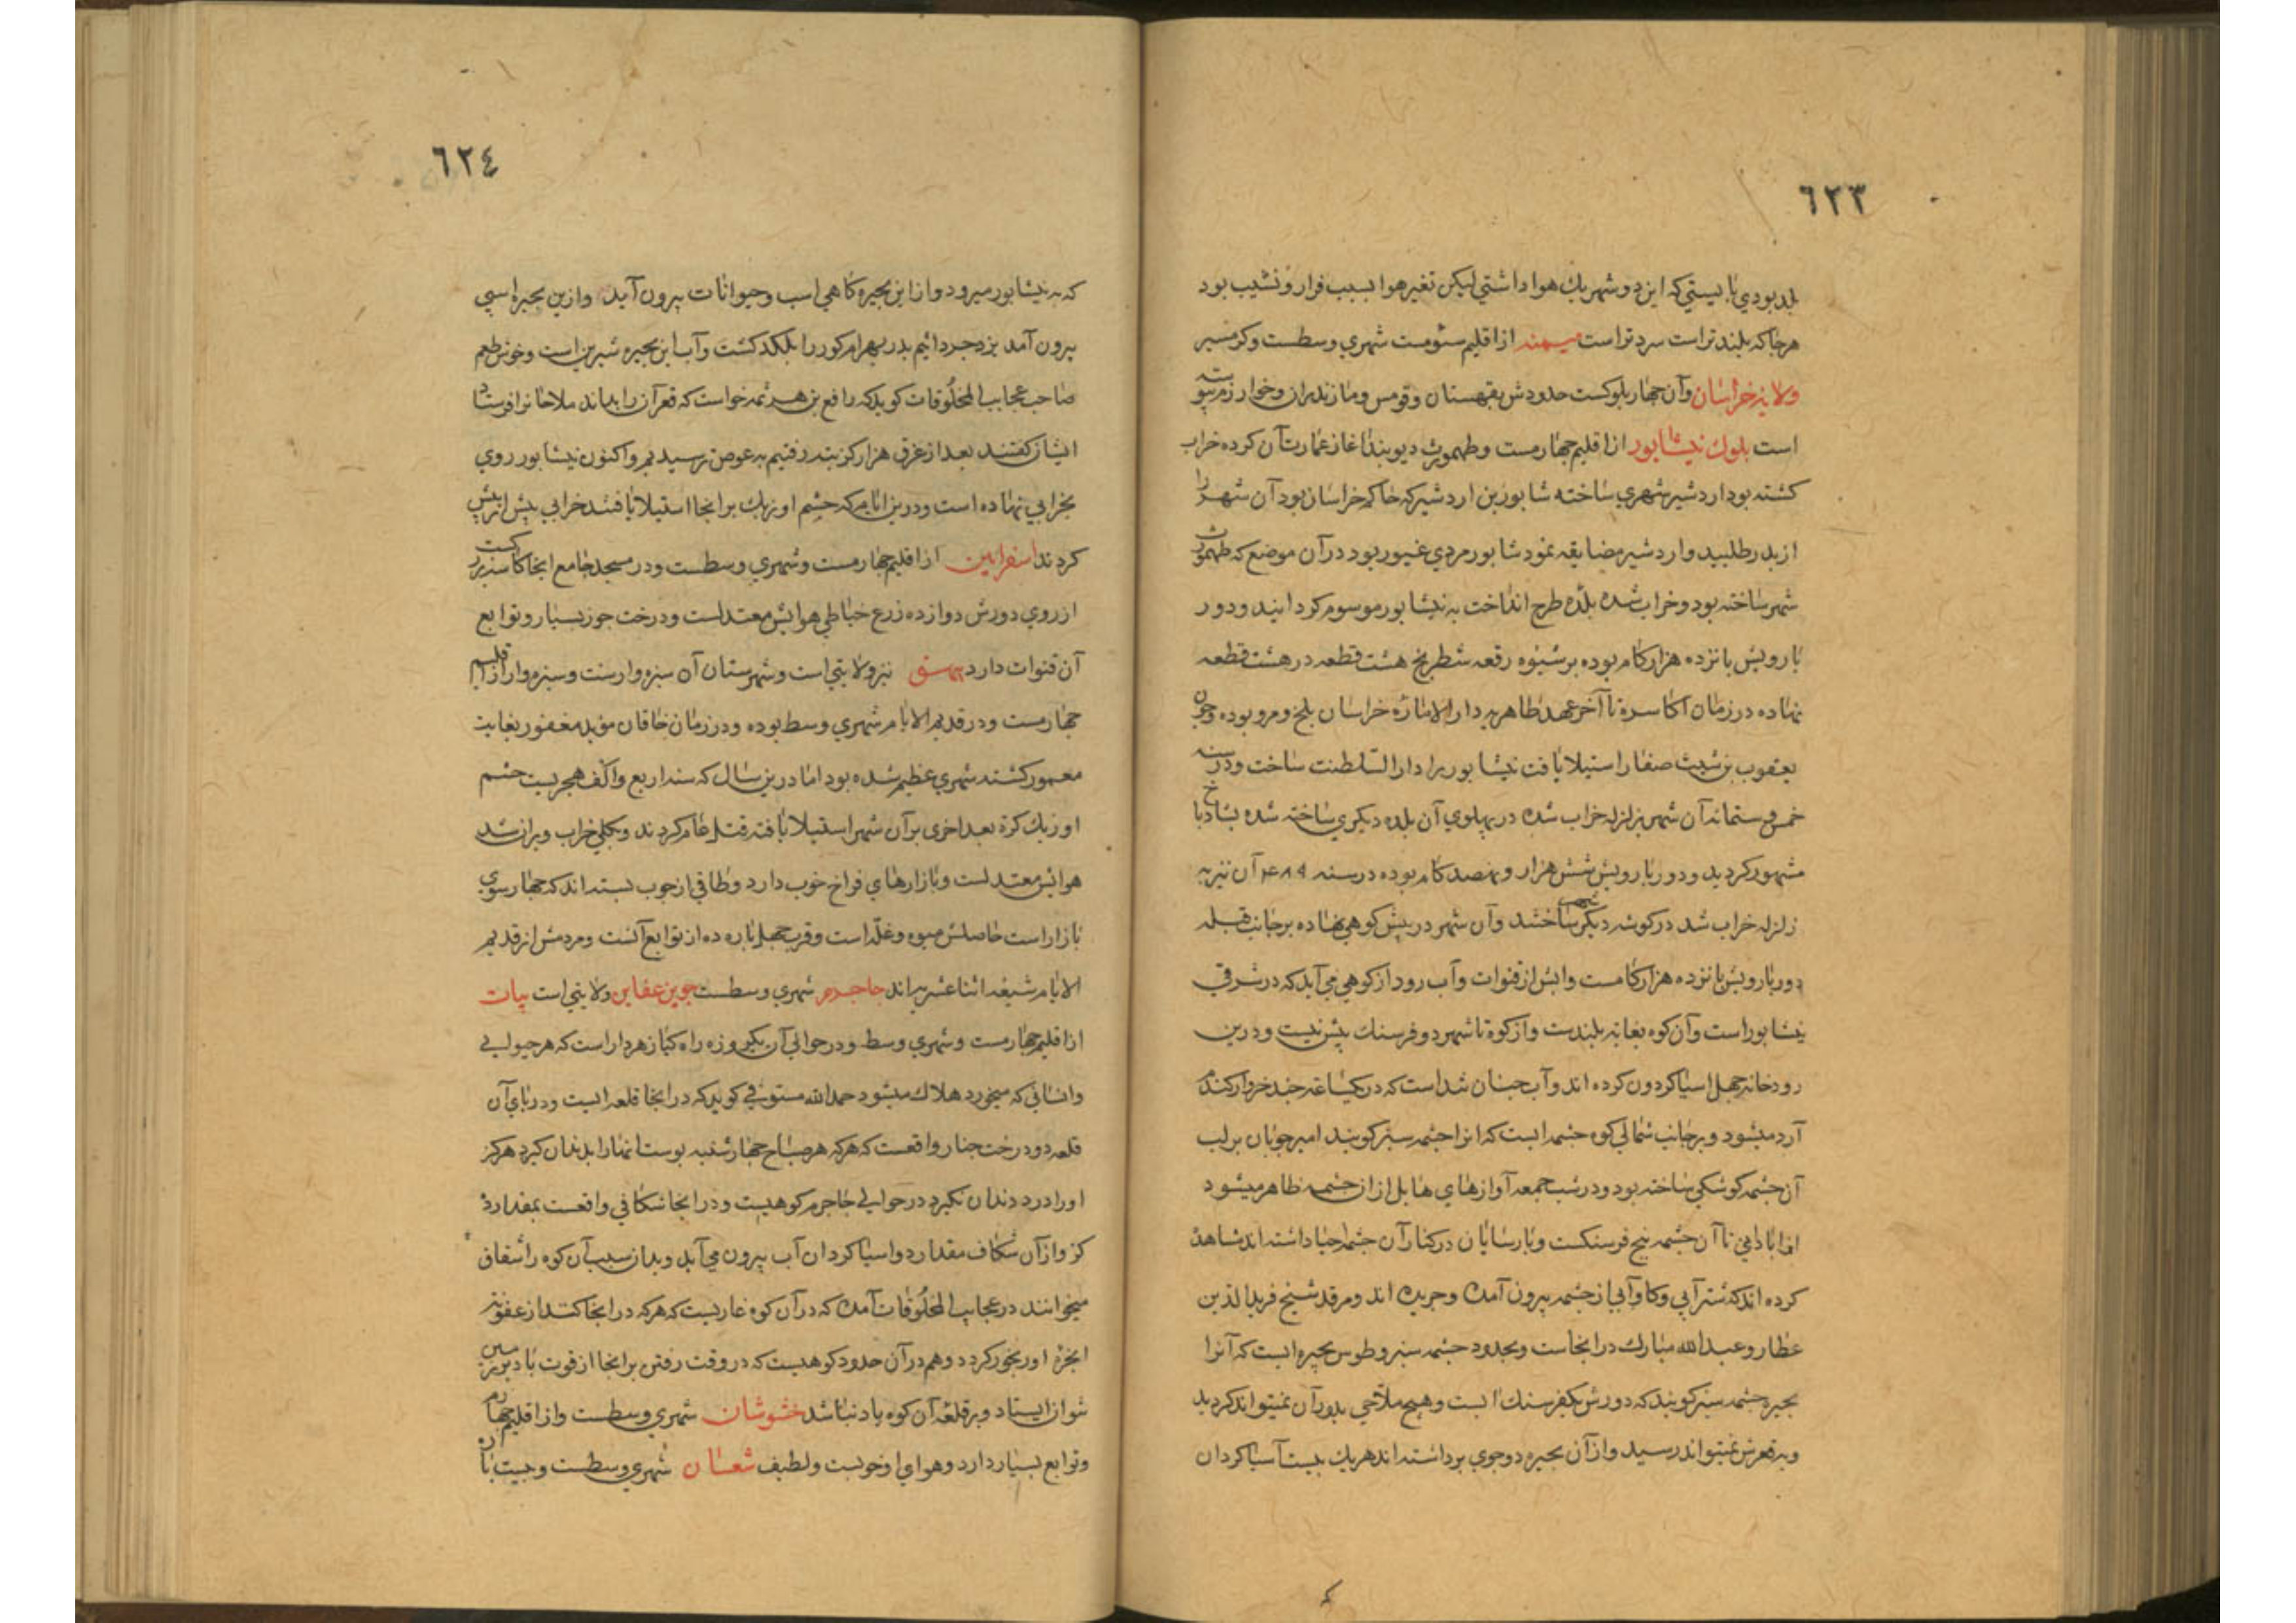 ٦٢٣
بلد بودي بايستي كه اين دو شهر يك هوا داشتي ليكن تغير هوا بسبب فراز و نشيب بود
هرجا كه بلند تر است سرد تر است ميمنه از اقليم سئومست شهري وسطست وكرمسير
ولايه خراسان وآن چهار بلوكست حدودش بقهستان وقومس ومازندران وخوارزم پيوسته
است بلوك نيشابور از اقليم چهارمست وطهمورث ديوبند اغاز عمارت آن كرده خراب
كشته بود اردشير شهري ساخته شابور بن اردشير كه حاكم خراسان بود آن شهر را
از پدر طلبيد واردشير مضايقه نمود شابور مردي غيور بود در آن موضع كه طهمورث
شهر ساخته بود وخراب شده بلده طرح انداخت به نيشابور موسوم كردانيد ودور
بارويش پانزده هزار كام بوده بر شيوه رقعه شطرنج هشت قطعه در هشت قطعه
نهاده در زمان اكاسره تا آخر عهد طاهريه دار الاماره خراسان بلخ ومرو بوده وچون
يعقوب بن ليث صفار استيلا يافت نيشابور را دار السلطنت ساخت ودر سنه
خمس وستمائه آن شهر بزلزله خراب شده در پهلوي آن بلده ديكري ساخته شده بشادباخ
مشهور كرديد ودور بارويش شش هزار ونهصد كام بوده در سنه آن نيز به
زلزله خراب شد در كوشه ديكر شهري ساختند وآن شهر در پيش كوهي نهاده بر جانب قبله
دور بارويش پانزده هزار كامست وابش از قنوات وآب رود از كوهي مي آيد كه در شرقي
نيشابور است وآن كوه بغايه بلندست واز كوه تا شهر دو فرسنك پيش نيست ودرين
رودخانه چهل اسيا كردون كرده اند وآب چنان تند است كه در يكساعه چند خروار كندم
آرد ميشود وبر جانب شمالي كوه چشمه ايست كه انرا چشمه سبز كويند امير چوپان بر لب
آن چشمه كوشكي ساخته بود ودر شب جمعه آوازهاي هايل از ان چشمه ظاهر ميشود
از اباداني تا آن چشمه پنج فرسنكست وپارسايان در كنار آن چشمه احيا داشته اند شاهد
كرده اند كه شتر آبي وكاو آبي از چشمه بيرون آمده وچريده اند ومرقد شيخ فريد الدين
عطار وعبد الله مبارك در انجاست وبحدود چشمه سبز وطوس بحيره ايست كه آنرا
بحيره چشمه سبز كويند كه دورش يكفرسنك است وهيچ ملاحي بدور آن نميتواند كرديد
وبه قعرش نميتواند رسيد واز آن بحيره دو جوي برداشته اند هر يك بيست آسيا كردان
٦٢٤
كه به نيشابور ميرود واز اين بحيره كاهي اسب وحيوانات بيرون آيد وازين بحيره اسبي
بيرون آمد يزدجرد اثيم پدر بهرام كور را بلكد كشت وآب اين بحيره شيرين است وخوش طعم
صاحب عجايب المخلوقات كويد كه رافع بن هرثمه خواست كه قعر آن را بداند ملاحانرا فرستاد
ايشان كفتند بعد از غرق هزار كز بته رفتيم به عوض نرسيديم واكنون نيشابور روي
بخرابي نهاده است ودرين ايام كه چشم اوزبك برانجا استيلا يافتند خرابي پيش از پيش
كردند اسفراين از اقليم چهارمست وشهري وسطست ودر مسجد جامع انجا كاسه بزركست
از روي دورش دوازده زرع خياطي هوايش معتدلست ودرخت جوز بسيار وتوابع
آن قنوات دارد بيهق نيز ولايتي است وشهرستان آن سبزه وارست وسبزه وار از اقليم
چهارمست ودر قديم الايام شهري وسط بوده ودر زمان خاقان مؤيد مغفور بغايت
معمور كشته شهري عظيم شده بود اما درين سال كه سنه اربع والف هجريست حشم
اوزبك كرة بعد اخرى بر آن شهر استيلا يافته قتل عام كردند وبكلي خراب ويران شد
هوايش معتدلست وبازارهاي فراخ خوب دارد وطاقي از چوب بسته اند كه چهار سوي
بازار است حاصلش ميوه وغله است وقرب چهل پاره ده از توابع آنست ومردمش از قديم
الايام شيعه اثنا عشريه اند جاجرم شهري وسطست جوين ولايتي است بيات
از اقليم چهارمست وشهري وسط ودر حوالي آن يكروزه راه كياه زهردار است كه هر حيواني
وانساني كه ميخورد هلاك ميشود حمد الله مستوفي كويد كه در انجا قلعه ايست ودر پاي آن
قلعه دو درخت چنار واقعست كه هركه هر صباح چهارشنبه پوست انها را بدندان كيرد هركز
اورا درد دندان نكيرد در حوالي جاجرم كوهيست ودر انجا شكافي واقعست بمقدار ده
كز واز آن شكاف مقدار دو اسيا كردان آب بيرون مي آيد وبدان سبب آن كوه را شقاق
ميخوانند در عجايب المخلوقات آمده كه در آن كوه غاريست كه هركه در انجا كندد از عفونة
ابخره اورنجور كردد وهم در آن حدود كوهيست كه در وقت رفتن برانجا از قوت باد بزمين
نتوان ايستاد وبر قلعه آن كوه باد نباشد خشوشان شهري وسطست واز اقليم چهارم
وتوابع بسيار دارد وهواي او خوبست ولطيف شعسان شهري وسطست وبيت